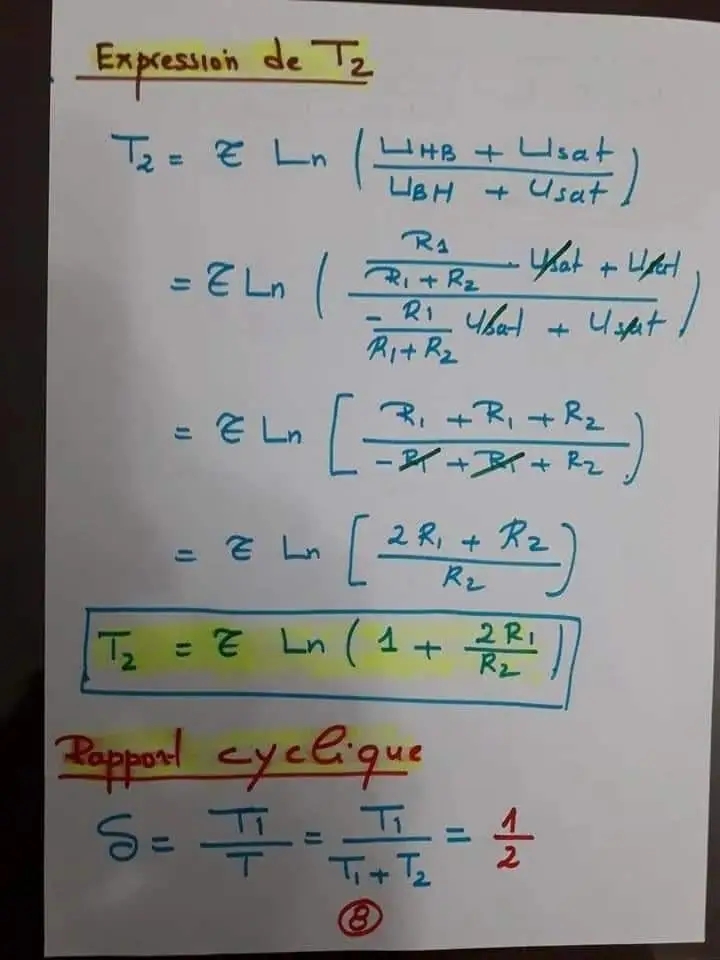 Expression de T₂
T₂ = τ Ln ( (UHB + Usat) / (UBH + Usat) )
= τ Ln ( (R₁ / (R₁ + R₂) . Usat + Usat) / (- R₁ / (R₁ + R₂) Usat + Usat) )
= τ Ln [ (R₁ + R₁ + R₂) / (-R₁ + R₁ + R₂) )
= τ Ln [ (2R₁ + R₂) / R₂ )
T₂ = τ Ln ( 1 + 2R₁ / R₂ )
Rapport cyclique
δ = T₁ / T = T₁ / (T₁ + T₂) = 1 / 2
8